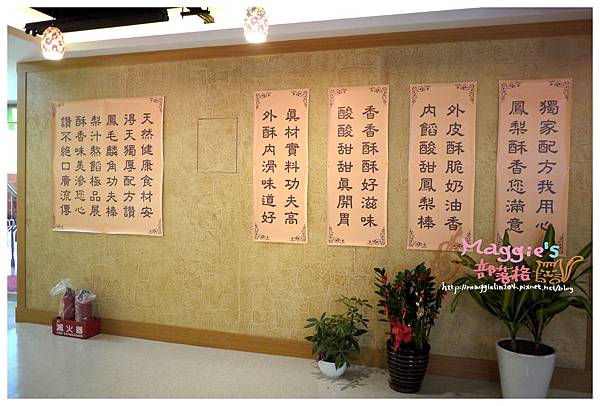 獨家配方我用心
鳳梨酥香您滿意
外皮酥脆奶油香
內餡酸甜鳳梨棒
香香酥酥好滋味
酸酸甜甜眞開胃
眞材實料功夫高
外酥內滑味道好
天然健康食材安
得天獨厚配方讚
鳳毛麟角功夫棒
梨汁熬餡極品展
酥香味美滲您心
讚不絕口廣流傳
滅火器
Maggie's
部落格
http://maggielin104.pixnet.net/blog